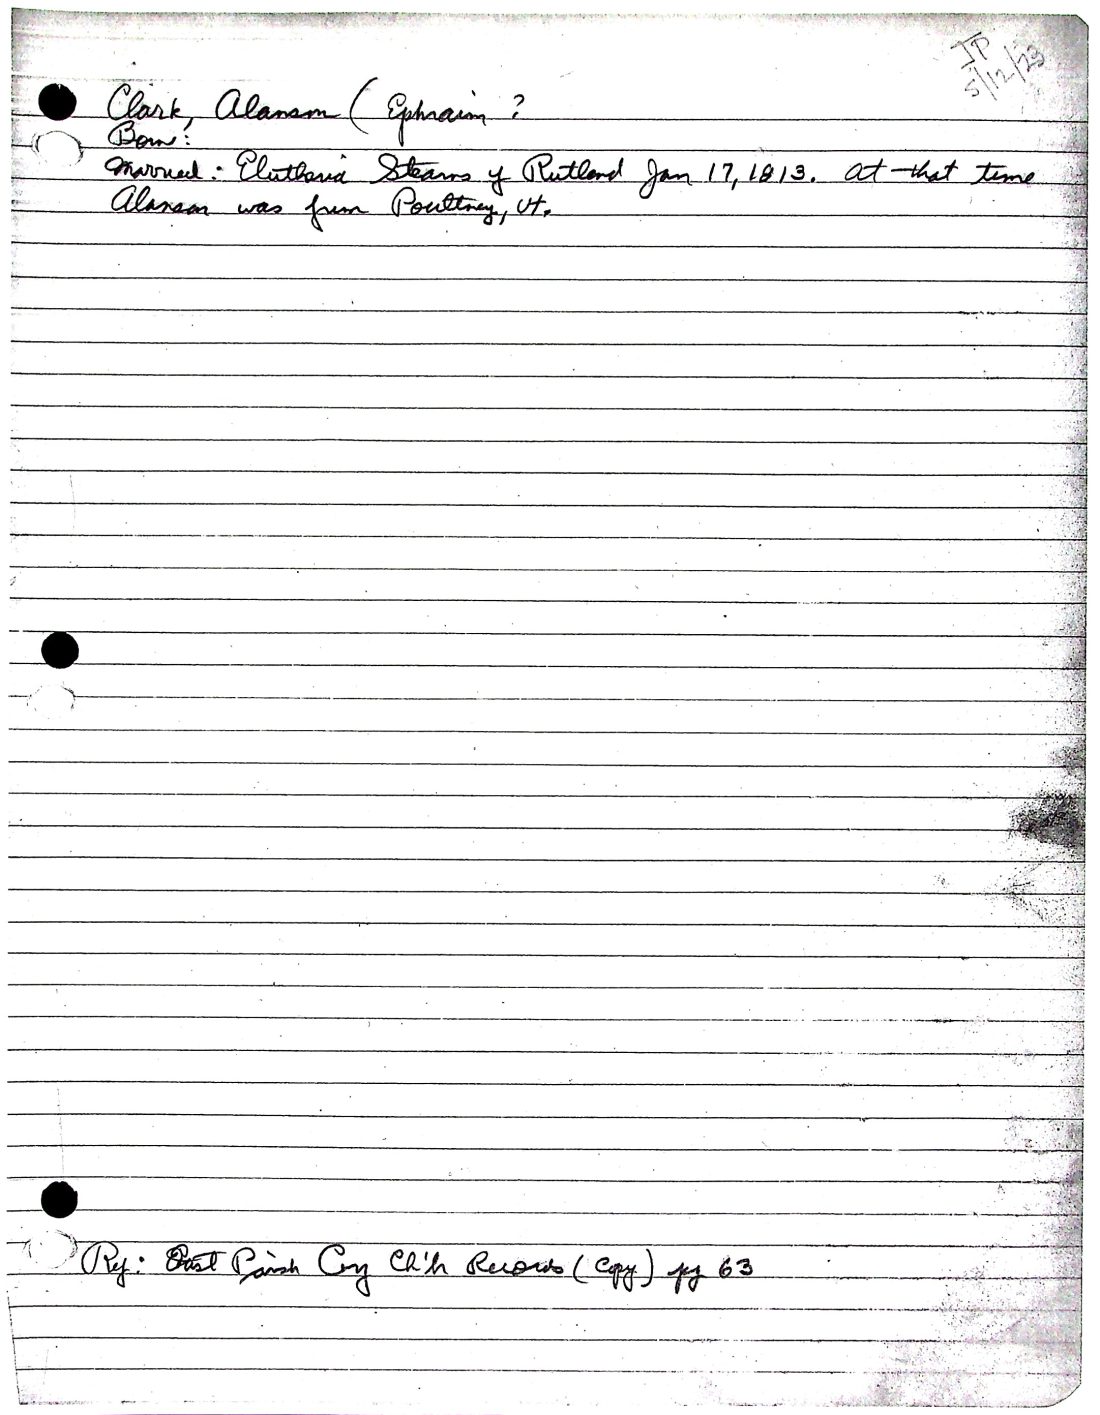 JP
5/12/23
Clark, Alanson ( Ephraim ?
Born:
Married: Elutheria Stearns of Rutland Jan 17, 1813. at that time
Alanson was from Poultney, Vt.
Ref: East Parish Cong Ch'h Records (Copy) pg 63